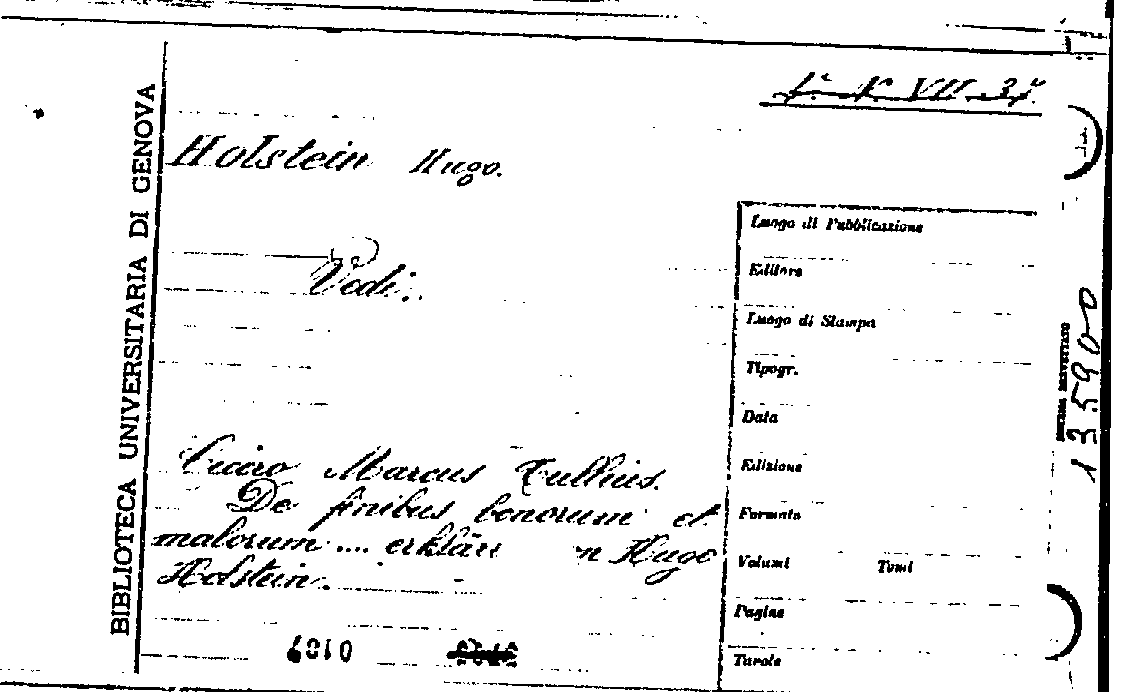 BIBLIOTECA UNIVERSITARIA DI GENOVA
Holstein Hugo.
Vedi:
Cicero Marcus Tullius.
De finibus bonorum et
malorum .... erklärt n Hugo
Holstein.
Luogo di Pubblicazione
Editore
Luogo di Stampa
Tipogr.
Data
Edizione
Formato
Volumi Tomi
Pagine
Tavole
135900